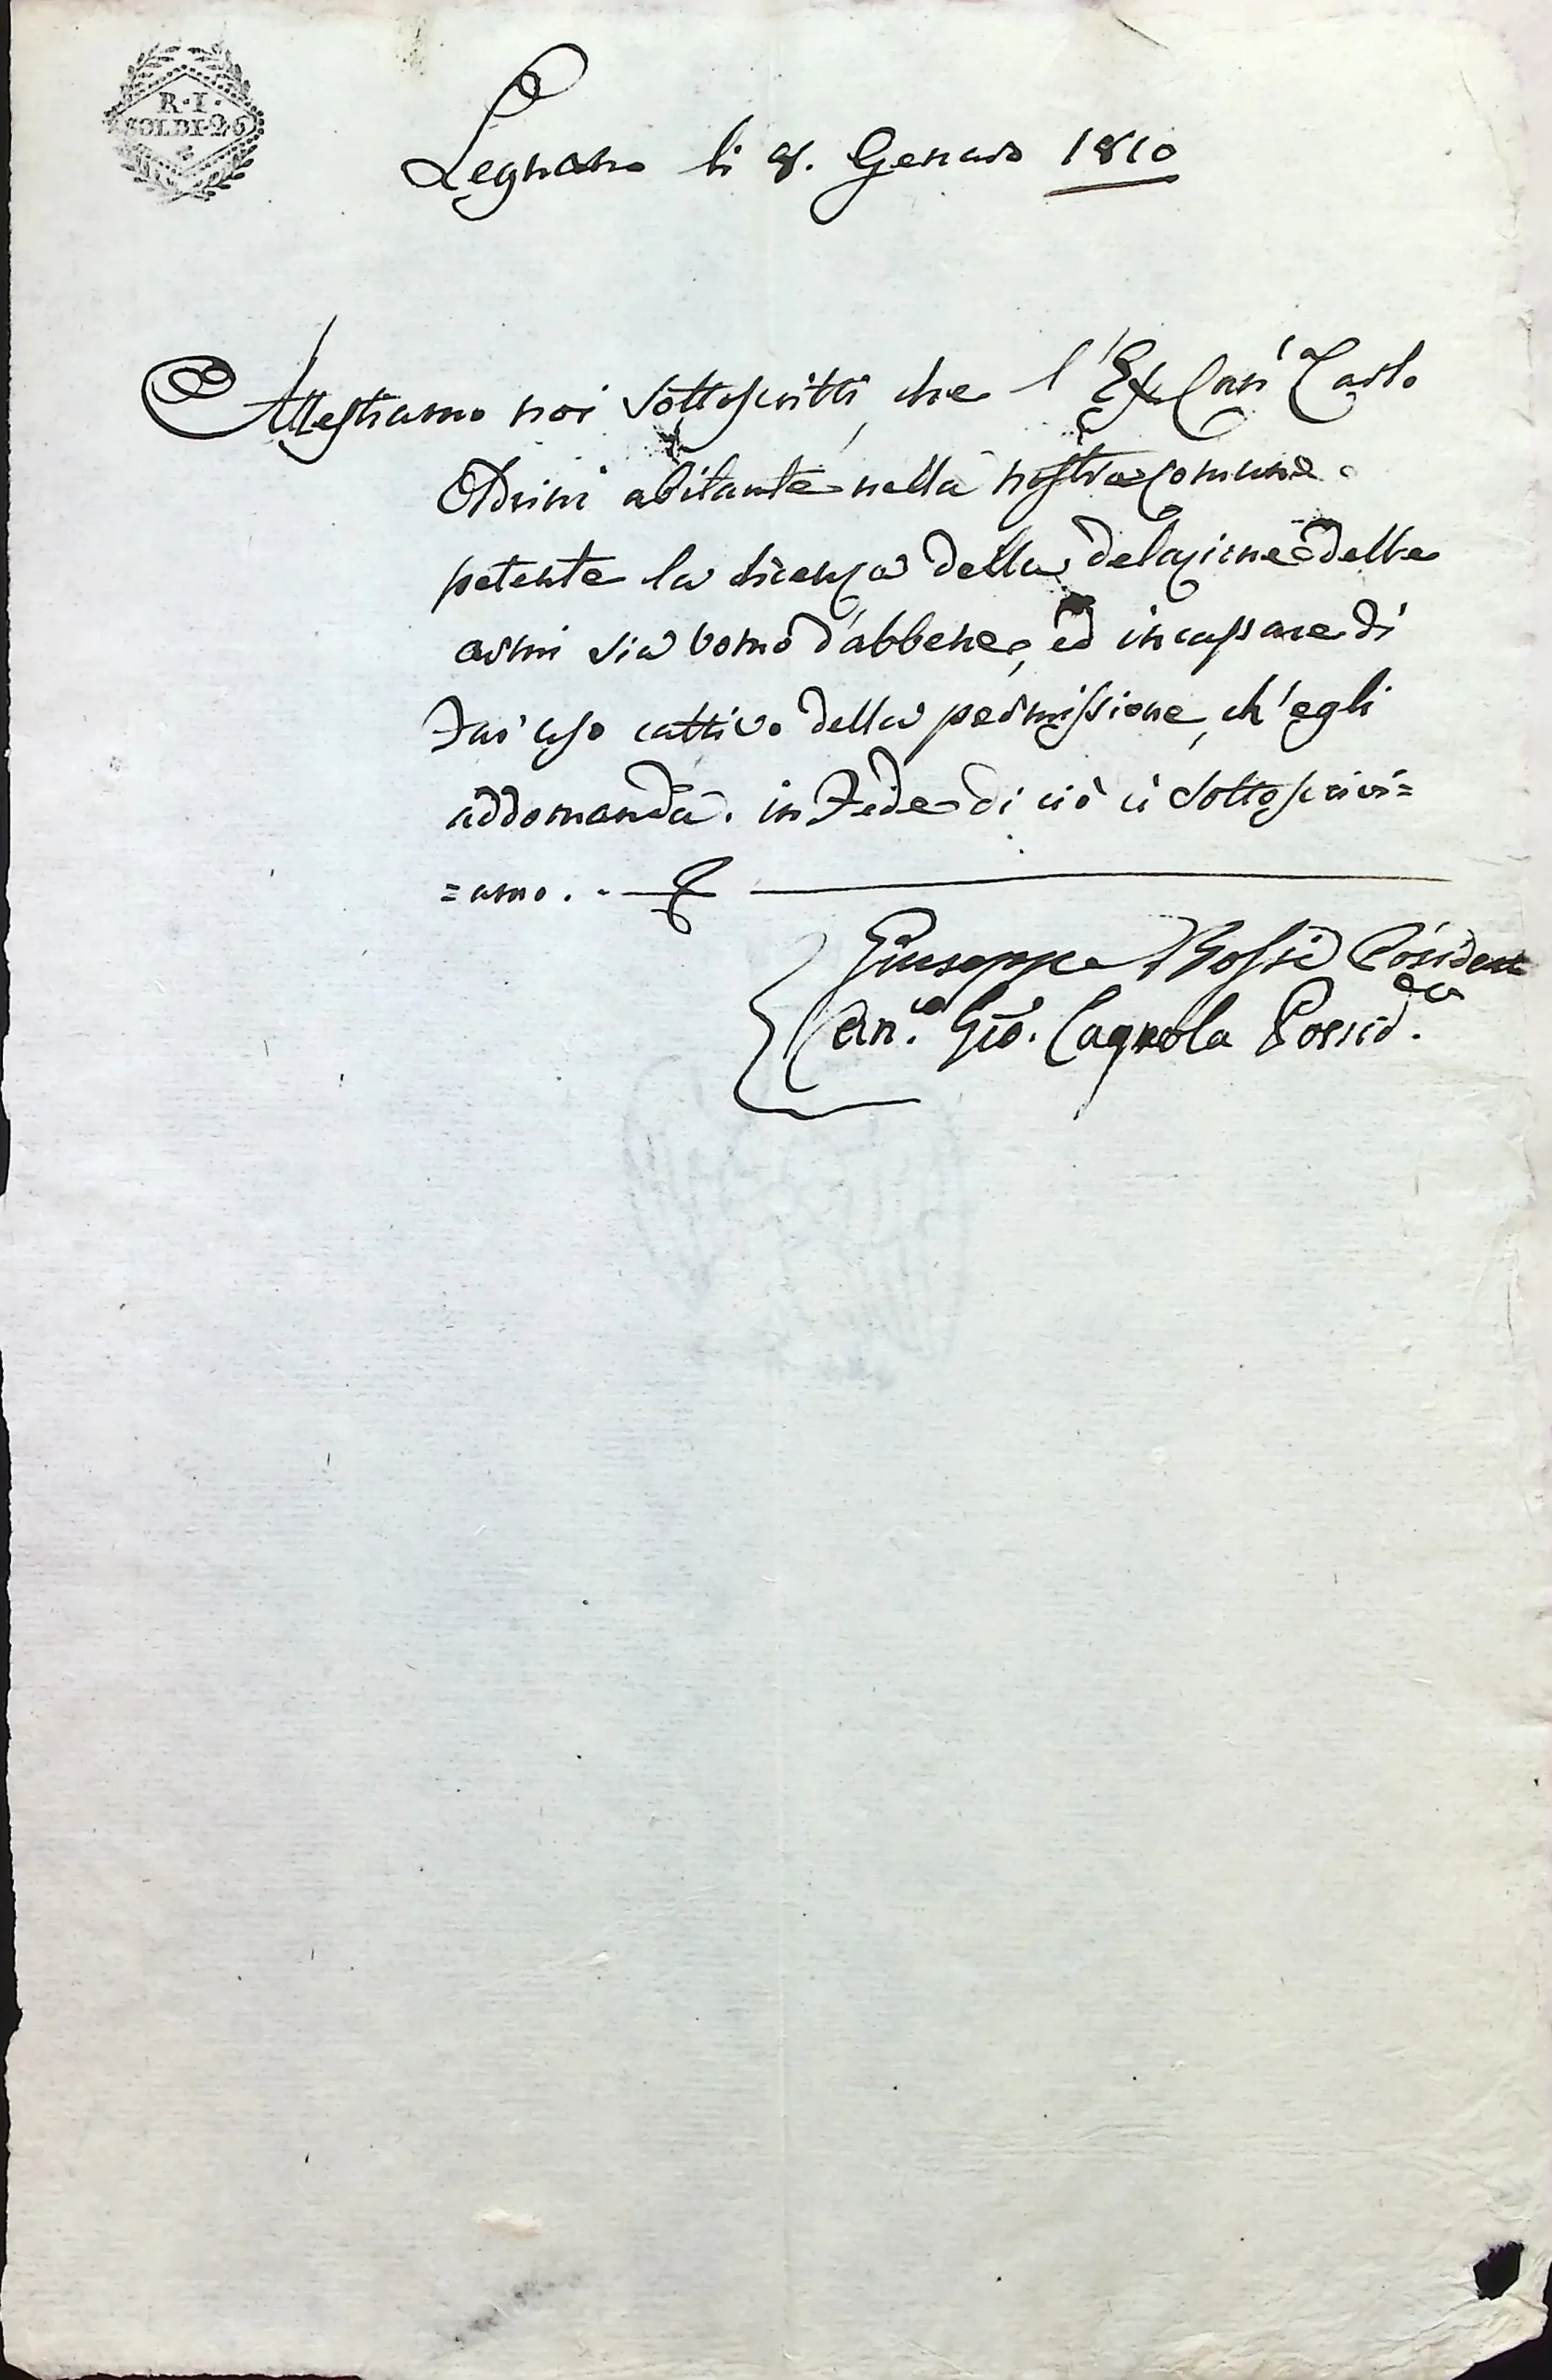 R·I·
SOLDI·26
Legnano li 8. Genaro 1810
Attestiamo noi sottoscritti, che l'Ex Can.' Carlo
Oldrini abitante nella nostra comune
petente la licenza della delazione delle
armi sia uomo d'abbene, ed incapace di
far uso cattivo della permissione, ch'egli
addomanda. in Fede di ciò ci sottoscrivi=
=amo. .
Giuseppe Bossi Possident
Can.co Gio. Cagnola Possid.